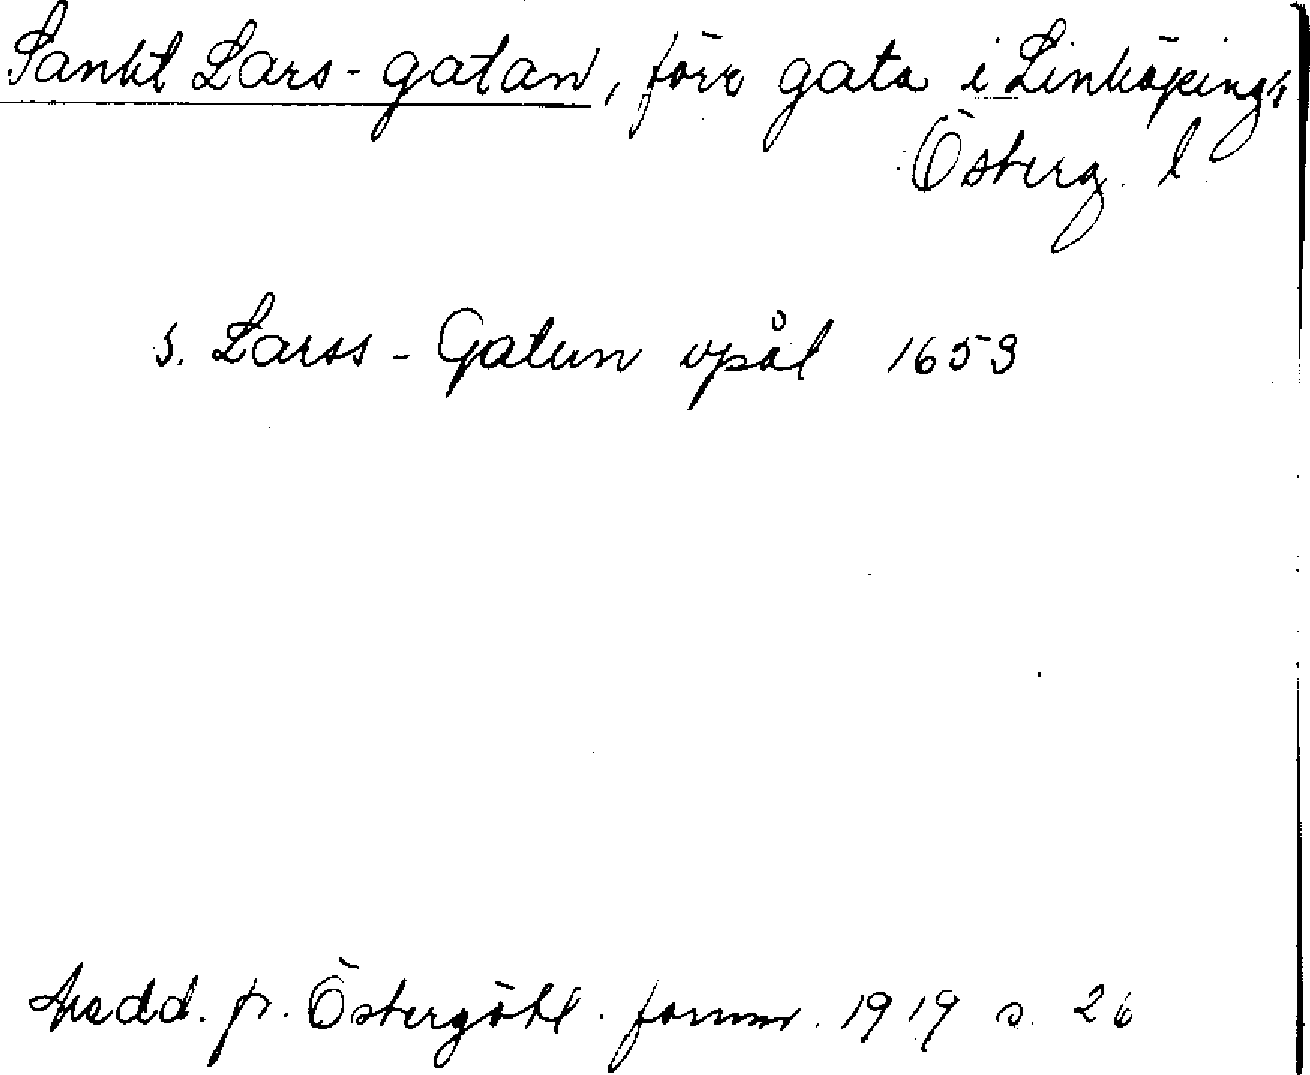 Sankt Lars-gatan, förr gata i Linköping,
Österg. l
S. Larss-Gatun opål 1653
Medd. fr. Östergötl. fornm. 1919 s. 26